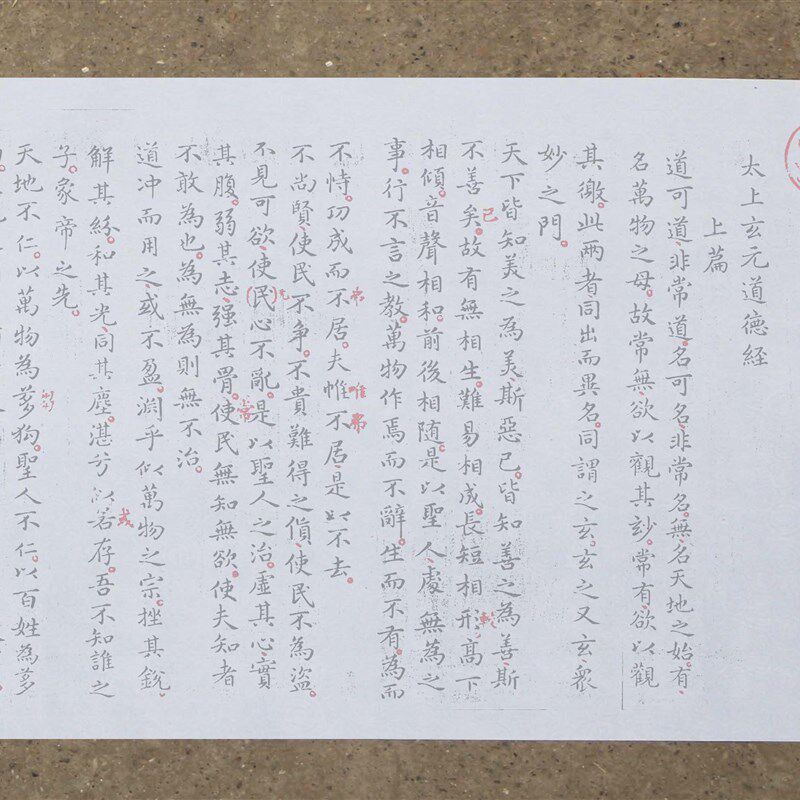 太上玄元道德経
上篇
道可道、非常道。名可名、非常名。無名天地之始。有
名萬物之母。故常無欲以觀其玅。常有欲以觀
其徼。此兩者同出而異名。同謂之玄。玄之又玄、衆
妙之門。
天下皆知美之為美、斯惡已。皆知善之為善、斯
不善矣。故有無相生、難易相成、長短相形、高下
已
較
相傾、音聲相和、前後相随。是以聖人處無為之
事。行不言之教。萬物作焉而不辭。生而不有。為而
不恃。功成而不居。夫惟不居。是以不去。
弗
唯弗
不尚賢、使民不争。不貴難得之貨、使民不為盜。
不見可欲、使(民)心不亂。是以聖人之治。虛其心、實
其腹。弱其志、强其骨。使民無知無欲。使夫知者
常
不敢為也。為無為則無不治。
道冲而用之。或不盈。渊乎似萬物之宗。挫其銳、
解其紛。和其光、同其塵。湛兮似若存。吾不知誰之
或
子。象帝之先。
天地不仁。以萬物為芻狗。聖人不仁。以百姓為芻